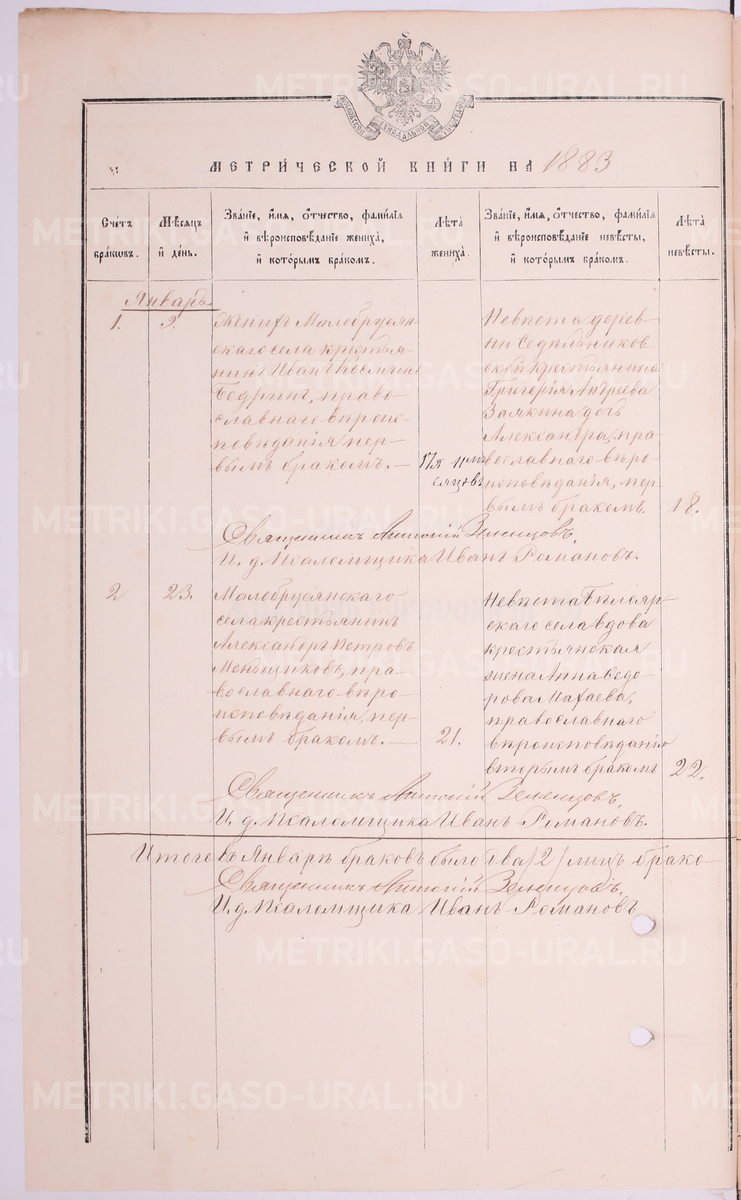 МОСКОВСКОЙ СѴНОДАЛЬНОЙ ТИПОГРАФІИ
МЕТРИ́ЧЕСКОЙ КНИ́ГИ НА 1883
Сче́тъ бра́кωвъ.
Мѣ́сяцъ и҆ де́нь.
Зва́нїе, и҆́мя, ѻ҆́тчество, фами́лїя и҆ вѣроисповѣ́данїе жениха̀, и҆ кото́рымъ бра́комъ.
Лѣта̀ жениха̀.
Зва́нїе, и҆́мя, ѻ҆́тчество, фами́лїя и҆ вѣроисповѣ́данїе невѣ́сты, и҆ кото́рымъ бра́комъ.
Лѣта̀ невѣ́сты.
Январь.
1.
9.
Женихъ Малобрусян-
скаго села крестья-
нинъ Иванъ Козминъ
Бедринъ, право-
славнаго вѣроис-
повѣданія, пер-
вымъ бракомъ. —
17 и мѣ-
сяцовъ
Невѣста дерев-
ни Седѣльников-
ской крестьянина
Григорія Андреева
Замкина дочь
Александра, пра-
вославнаго вѣро-
исповѣданія, пер-
вымъ бракомъ.
18.
Священникъ Антоній Зеленцовъ.
И. д. Псаломщика Иванъ Романовъ.
2
23.
Малобрусянскаго
села крестьянинъ
Александръ Петровъ
Меньщиковъ, пра-
вославнаго вѣро-
исповѣданія, пер-
вымъ бракомъ. —
21.
Невѣста Бѣлояр-
скаго села вдова
крестьянская
жена Анна Ѳедо-
рова Махаева,
православнаго
вѣроисповѣданія
вторымъ бракомъ
22.
Священникъ Антоній Зеленцовъ.
И. д. Псаломщика Иванъ Романовъ.
Итого въ Январѣ браковъ было два /2/ лицъ брако-
Священникъ Антоній Зеленцовъ.
И. д. Псаломщика Иванъ Романовъ
METRIKI.GASO-URAL.RU